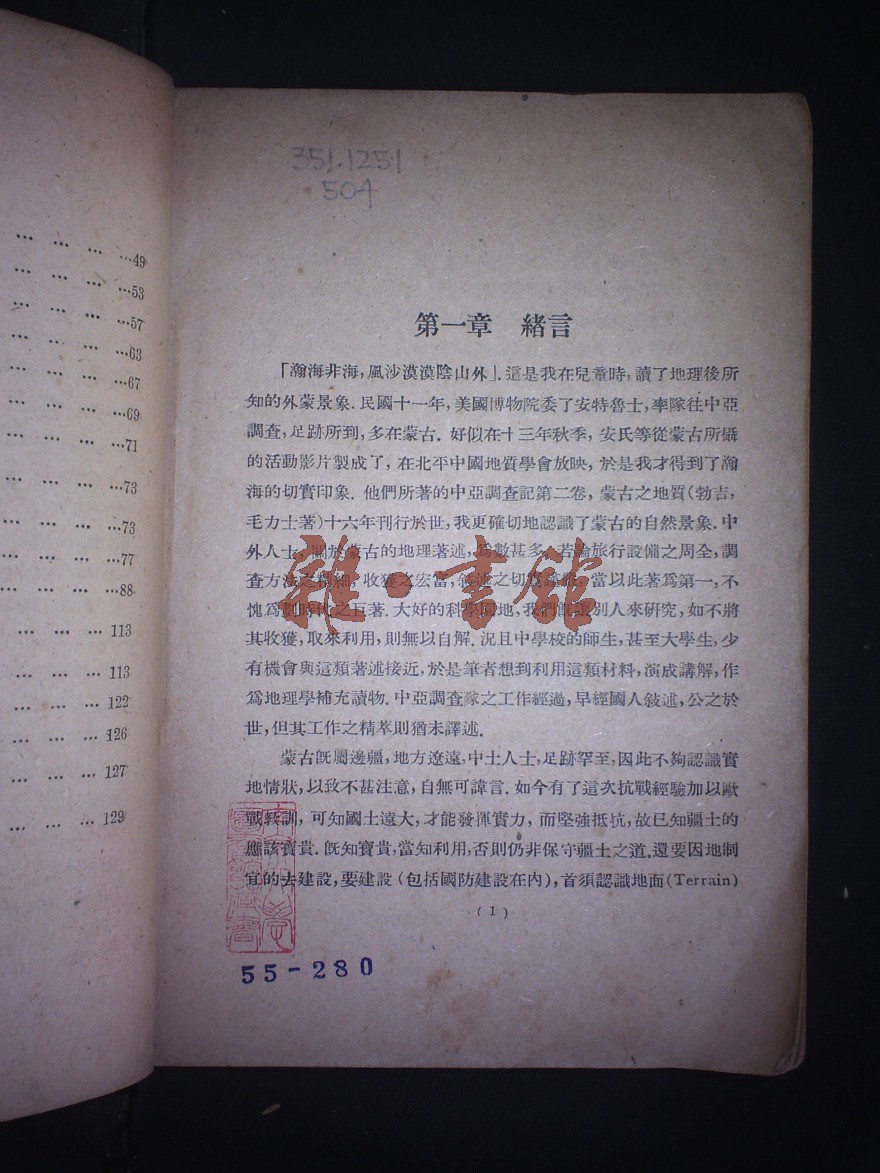 …49
…53
…57
…63
…67
…69
…71
…73
…73
…77
…88
… … … 113
… … … 113
… … … 122
… … … 126
… … … 127
… … … 129
351.1251
504
第一章 緒言
「瀚海非海,風沙漠漠陰山外」.這是我在兒童時,讀了地理後所
知的外蒙景象.民國十一年,美國博物院委了安特魯士,率隊往中亞
調查,足跡所到,多在蒙古.好似在十三年秋季,安氏等從蒙古所攝
的活動影片製成了,在北平中國地質學會放映,於是我才得到了瀚
海的切實印象.他們所著的中亞調查記第二卷,蒙古之地質(勃吉,
毛力士著)十六年刊行於世,我更確切地認識了蒙古的自然景象.中
外人士,關於蒙古的地理著述,爲數甚多,若論旅行設備之周全,調
查方法之精細,收獲之宏富,敍述之切實,當以此著爲第一,不
愧爲劃時代之巨著.大好的科學園地,我們旣讓別人來研究,如不將
其收獲,取來利用,則無以自解.況且中學校的師生,甚至大學生,少
有機會與這類著述接近,於是筆者想到利用這類材料,演成講解,作
爲地理學補充讀物.中亞調查隊之工作經過,早經國人敍述,公之於
世,但其工作之精萃則猶未譯述.
蒙古旣屬邊疆,地方遼遠,中土人士,足跡罕至,因此不夠認識實
地情狀,以致不甚注意,自無可諱言.如今有了這次抗戰經驗加以歐
戰教訓,可知國土遠大,才能發揮實力,而堅強抵抗,故已知疆土的
應該寶貴.旣知寶貴,當知利用,否則仍非保守疆土之道,還要因地制
宜的去建設,要建設(包括國防建設在內),首須認識地面(Terrain)
(1)
55-280
雜·書館